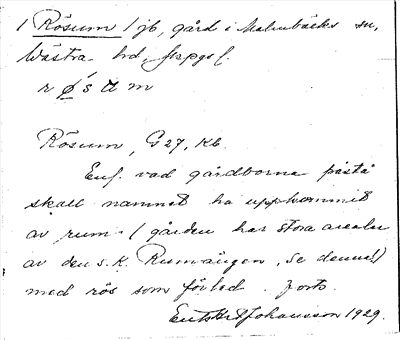 1 Rösum 1 jb, gård i Malmbäcks sn,
Västra hd, Jkpgs l.
r ø s u m
Rösum, G27, Kb.
Enl. vad gårdborna påstå
skall namnet ha uppkommit
av rum- (gården har stora arealer
av den s.k. Rumängen, se denna!)
med rös som förled.
Johansson 1929.